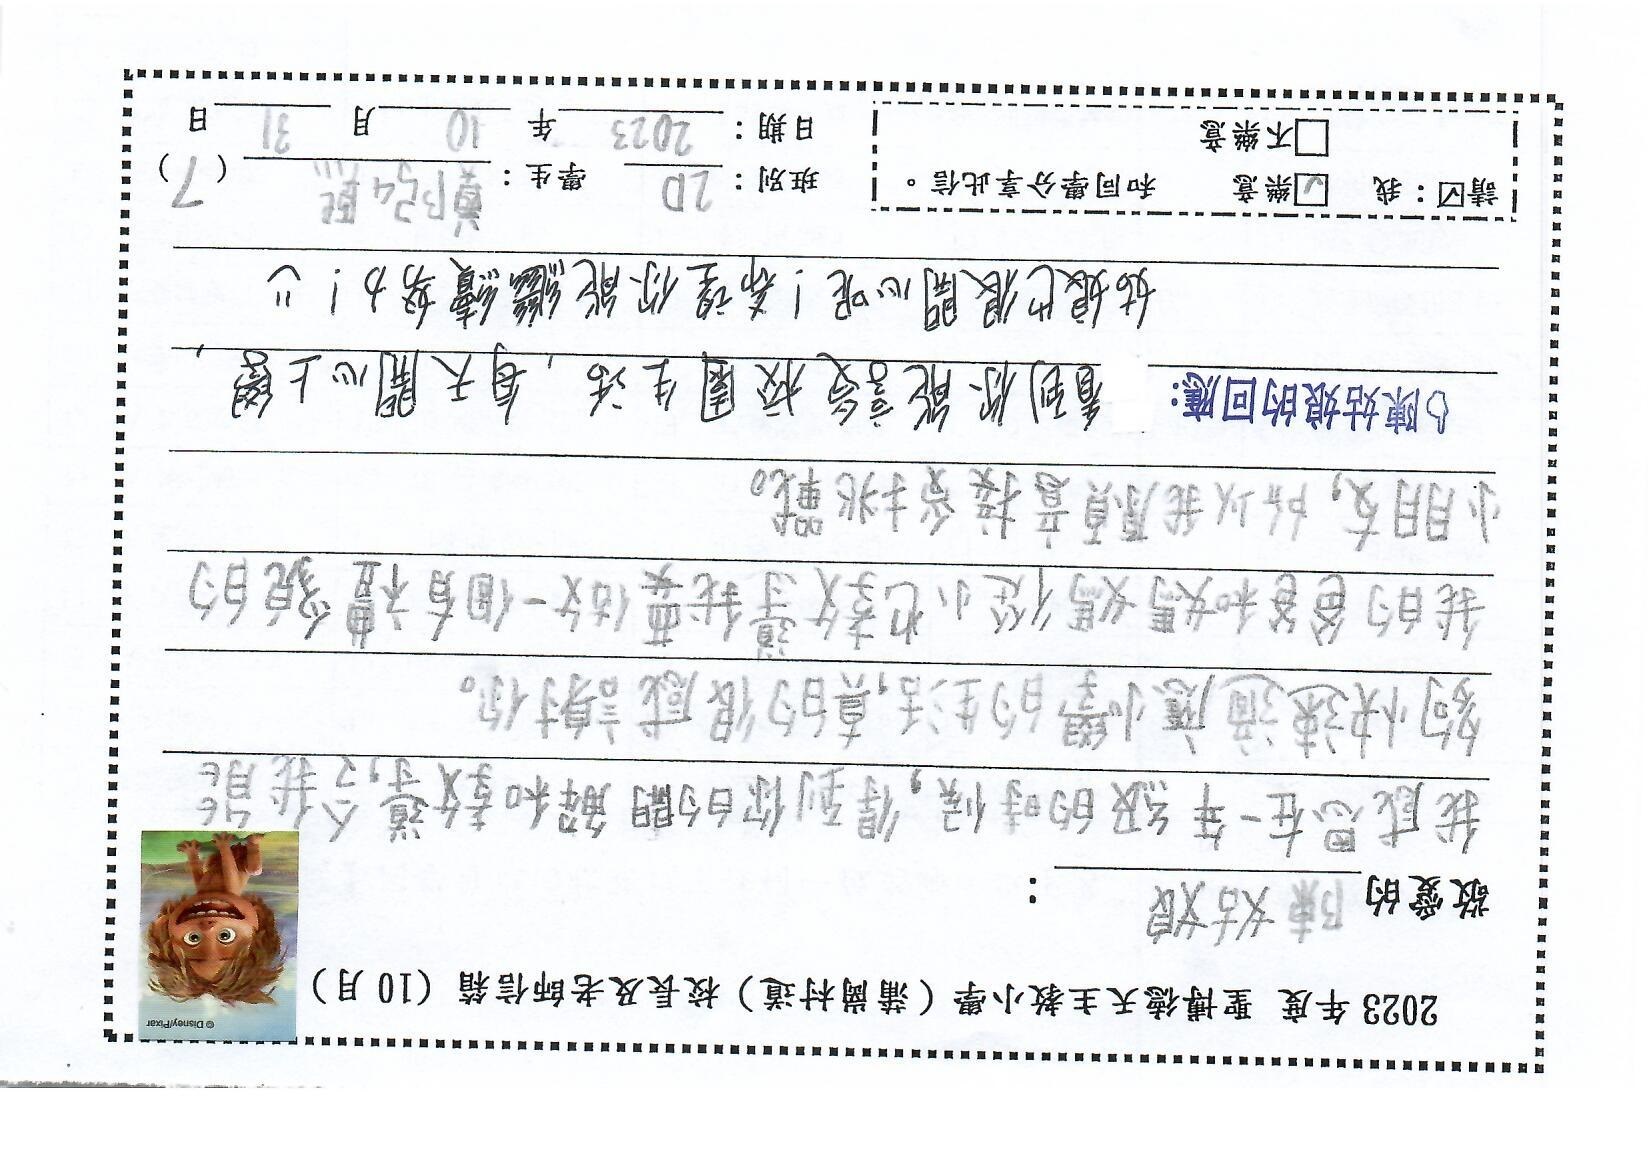 2023 年度 聖博德天主教小學（蒲崗村道）校長及老師信箱（10 月）
© Disney/Pixar
敬愛的 陳姑娘 ：
我感恩在一年級的時候，得到你的開解和教導，令我能
夠快速適應小學的生活，真的很感謝你。
我的爸爸和媽媽從小也教導我要做一個有禮貌的
小朋友，所以我願意接受挑戰。
陳姑娘的回應： 看到你能享受校園生活，每天開心上學，
姑娘也很開心呢！希望你能繼續努力！
請☑：我 ☑樂意 和同學分享此信。
□不樂意
班別： 2D 學生： （ 7 ）
日期： 2023 年 10 月 31 日